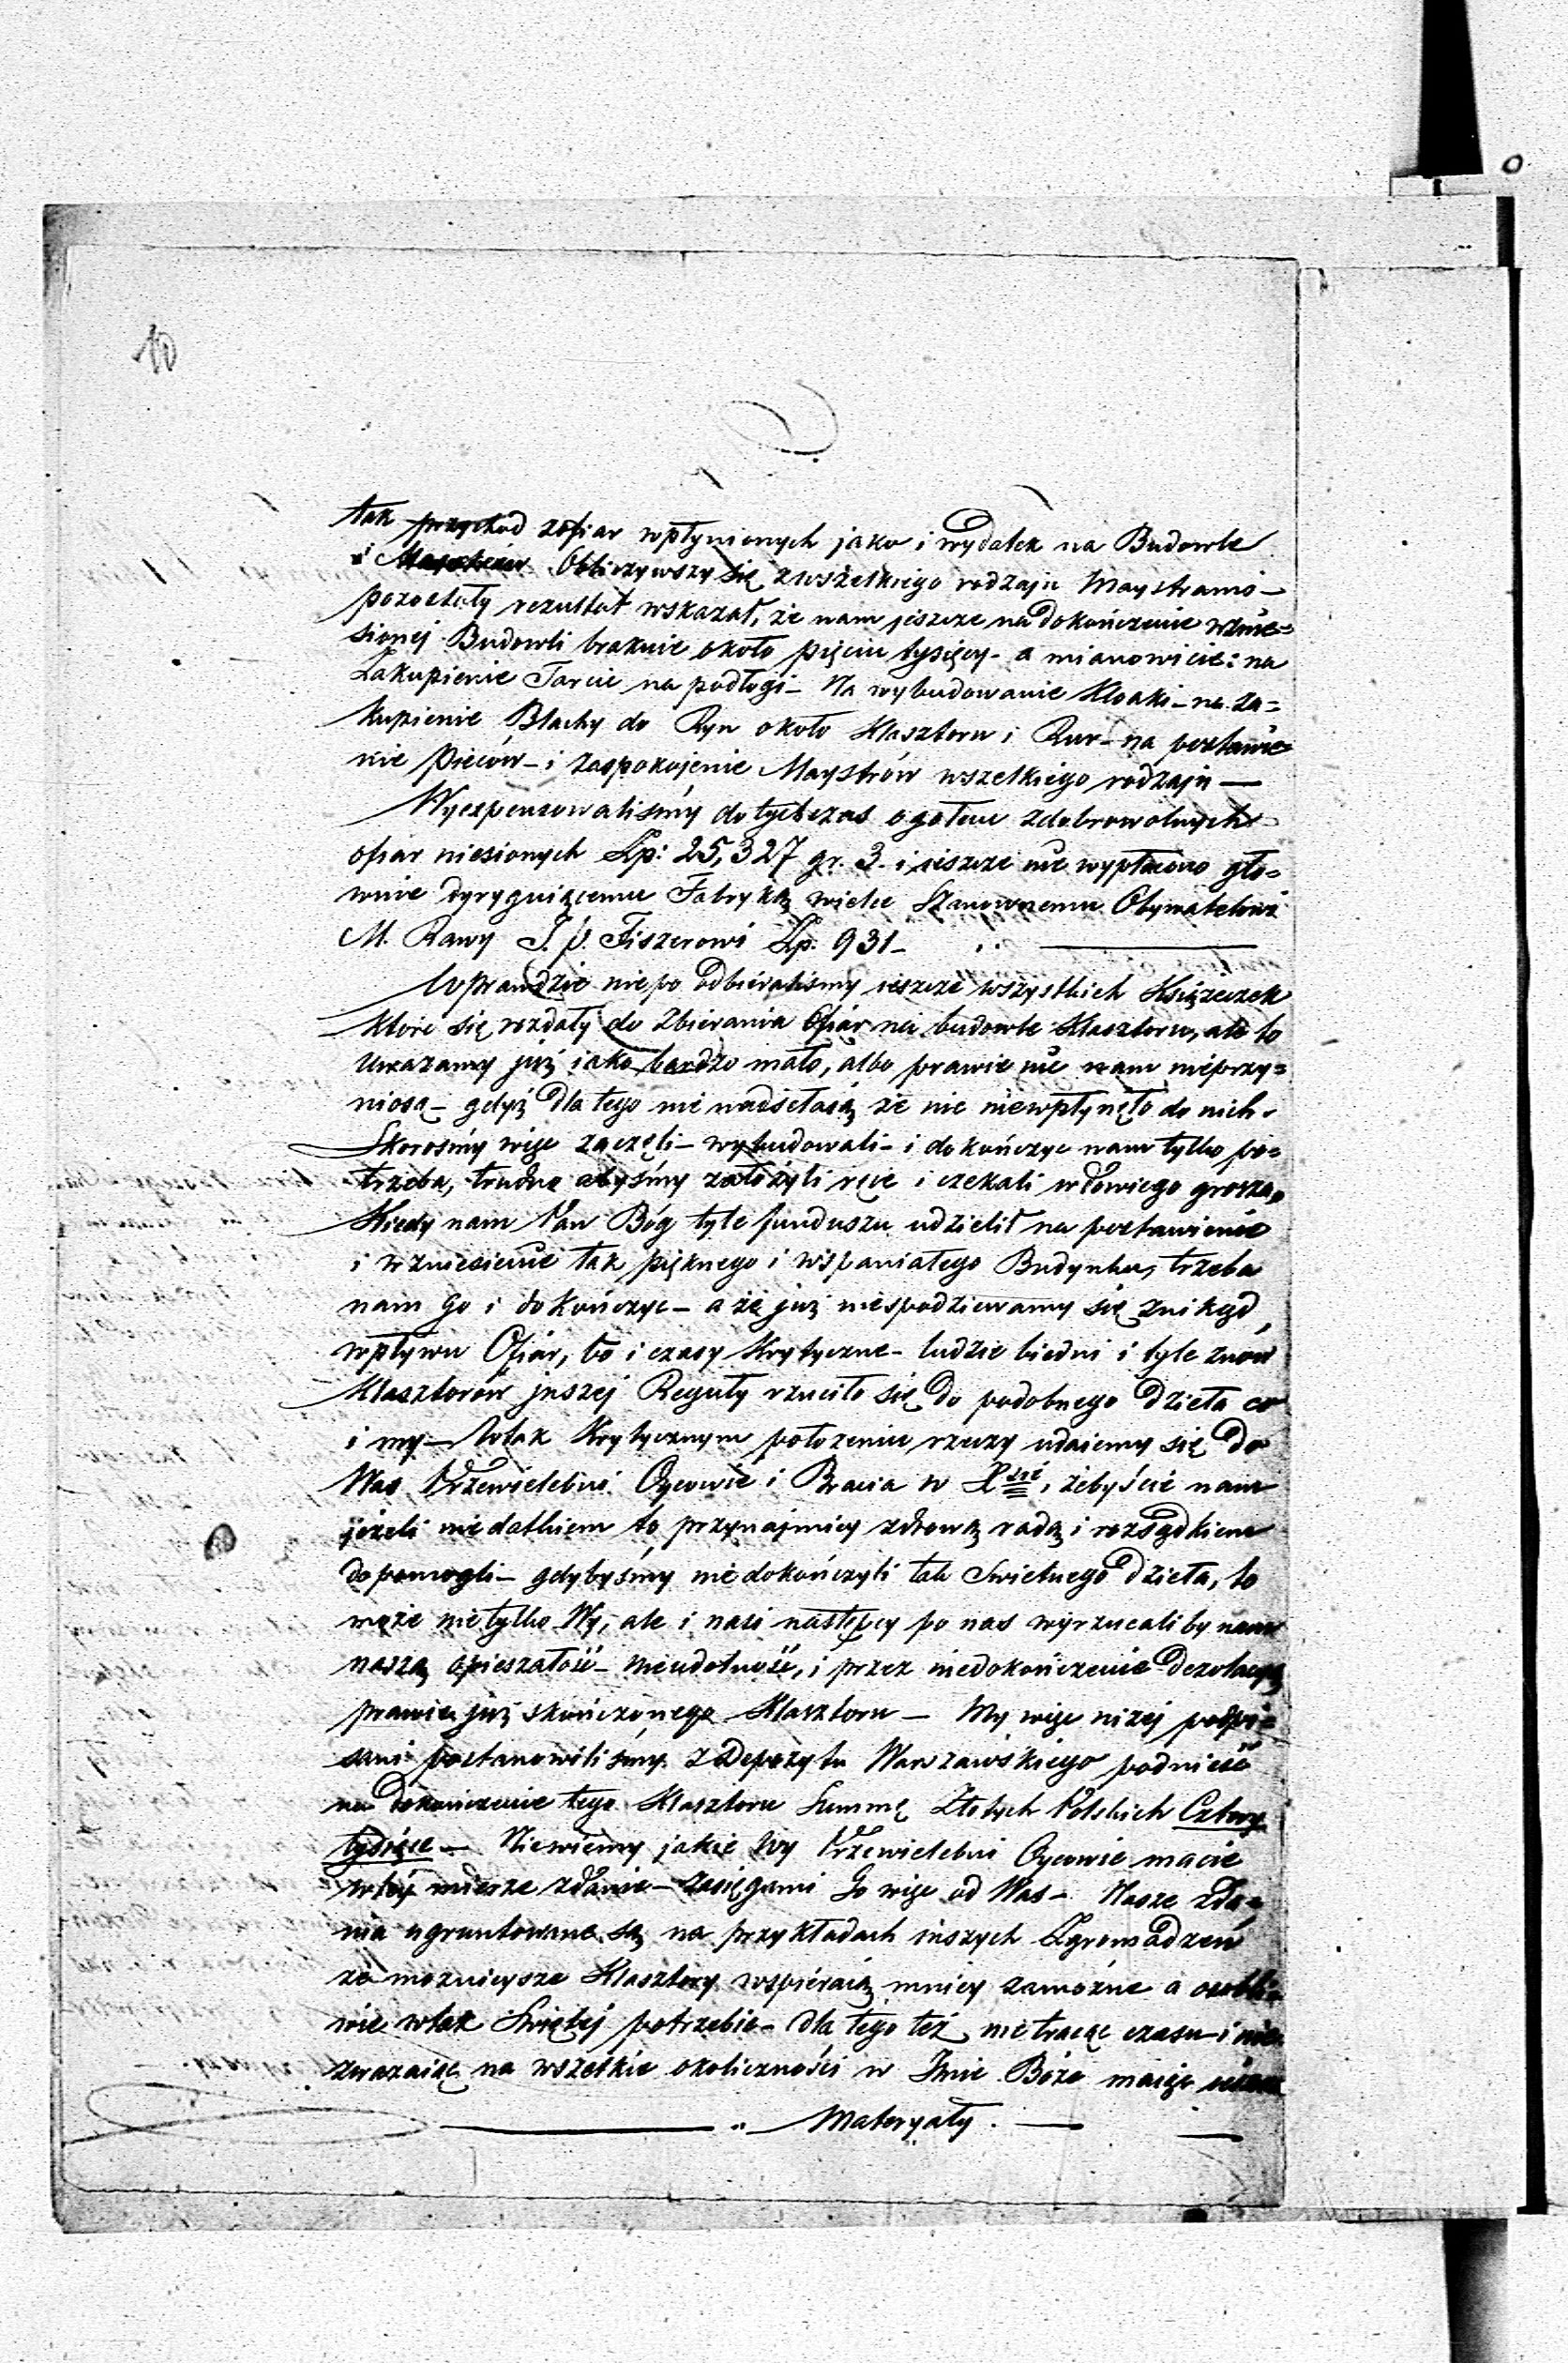 10
tak przychod zofiar wpłynionych jako i wydatek na Budowle
i Obliczywszy się zwszelkiego rodzaju Maystrami –
pozostały rezultat wskazał, że nam jeszcze na dokończenie wznie=
sionej Budowli braknie około pięciu tysięcy – a mianowicie: na
Zakupienie Tarcic na podłogi – Na wybudowanie Kloaki – na za=
kupienie Blachy do Ryn około Klasztoru i Rur – na postawie=
nie Pieców – i zaspokojenie Maystrów wszelkiego rodzaju —
Wyexpensowaliśmy dotychczas ogołem zdobrowolnych
ofiar niesionych Złp: 25,327 gr. 3. i ieszcze nie wypłacono głó=
wnie dyryguiącemu Fabryką wielce Szanownemu Obywatelowi
M. Rawy J. P. Fiszerowi Złp. 931 –
Wprawdzie niepo odbieraliśmy ieszcze wszystkich Książeczek
które się rozdały do Zbierania Ofiar na budowle Klasztoru, ale to
Uważamy już iako bardzo mało, albo prawie nic nam nieprzy=
niosą – gdyż dla tego nie nadsełaią że nic niewpłynęło do nich –
Skorośmy więc zaczęli – wybudowali – i dokończyc nam tylko po=
trzeba, trudno abyśmy założyli ręce i czekali wdowiego grosza,
Kiedy nam Pan Bóg tyle funduszu udzielił na postawienie
i wzniesienie tak pięknego i wspaniałego Budynku, trzeba
nam go i dokończyc – a że już niespodziewamy się znikąd
wpływu Ofiar, bo i czasy Krytyczne – ludzie biedni i tyle znów
Klasztorów jnszej Reguły rzuciło się do podobnego dzieła co
i my – Wtak Krytycznym położeniu rzeczy udaiemy się do
Was Przewielebni Oycowie i Bracia w X<sup>sie</sup>, żebyście nam
jeżeli nie datkiem to przynajmniey zdrową radą i rozsądkiem
dopomogli – gdybyśmy niedokończyli tak Swietnego dzieła, to
może nietylko Wy, ale i nasi następcy po nas wyrzucaliby nam
naszą opieszałość – nieudolność, i przez niedokończenie dezolacyą
prawie już skończonego Klasztoru — My więc niżej podpi=
sani postanowiliśmy z Depozytu Warszawskiego podnieść
na dokończenie tego Klasztoru Summę Złotych Polskich Cztery
tysiące — Niewiemy jakie Wy Przewielebni Oycowie macie
wtéj mierze zdanie – Zasięgamy Go więc od Was – Nasze zda=
nia ugruntowane są na przykładach inszych Zgromadzeń
że możnieysze Klasztory wspieraią mniey zamożne a osobli=
wie wtak Swiętéj potrzebie – dla tego też nie tracąc czasu – i nie
zważaiąc na wszelkie okoliczności w Imie Boże maiąc
Materyały.